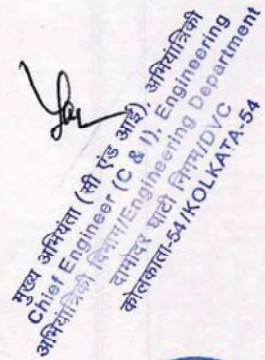 मुख्य अभियंता (सी एंड आई), अभियांत्रिकी
Chief Engineer (C & I), Engineering
अभियांत्रिकी विभाग/Engineering Department
दामोदर घाटी निगम/DVC
कोलकाता-54/KOLKATA-54